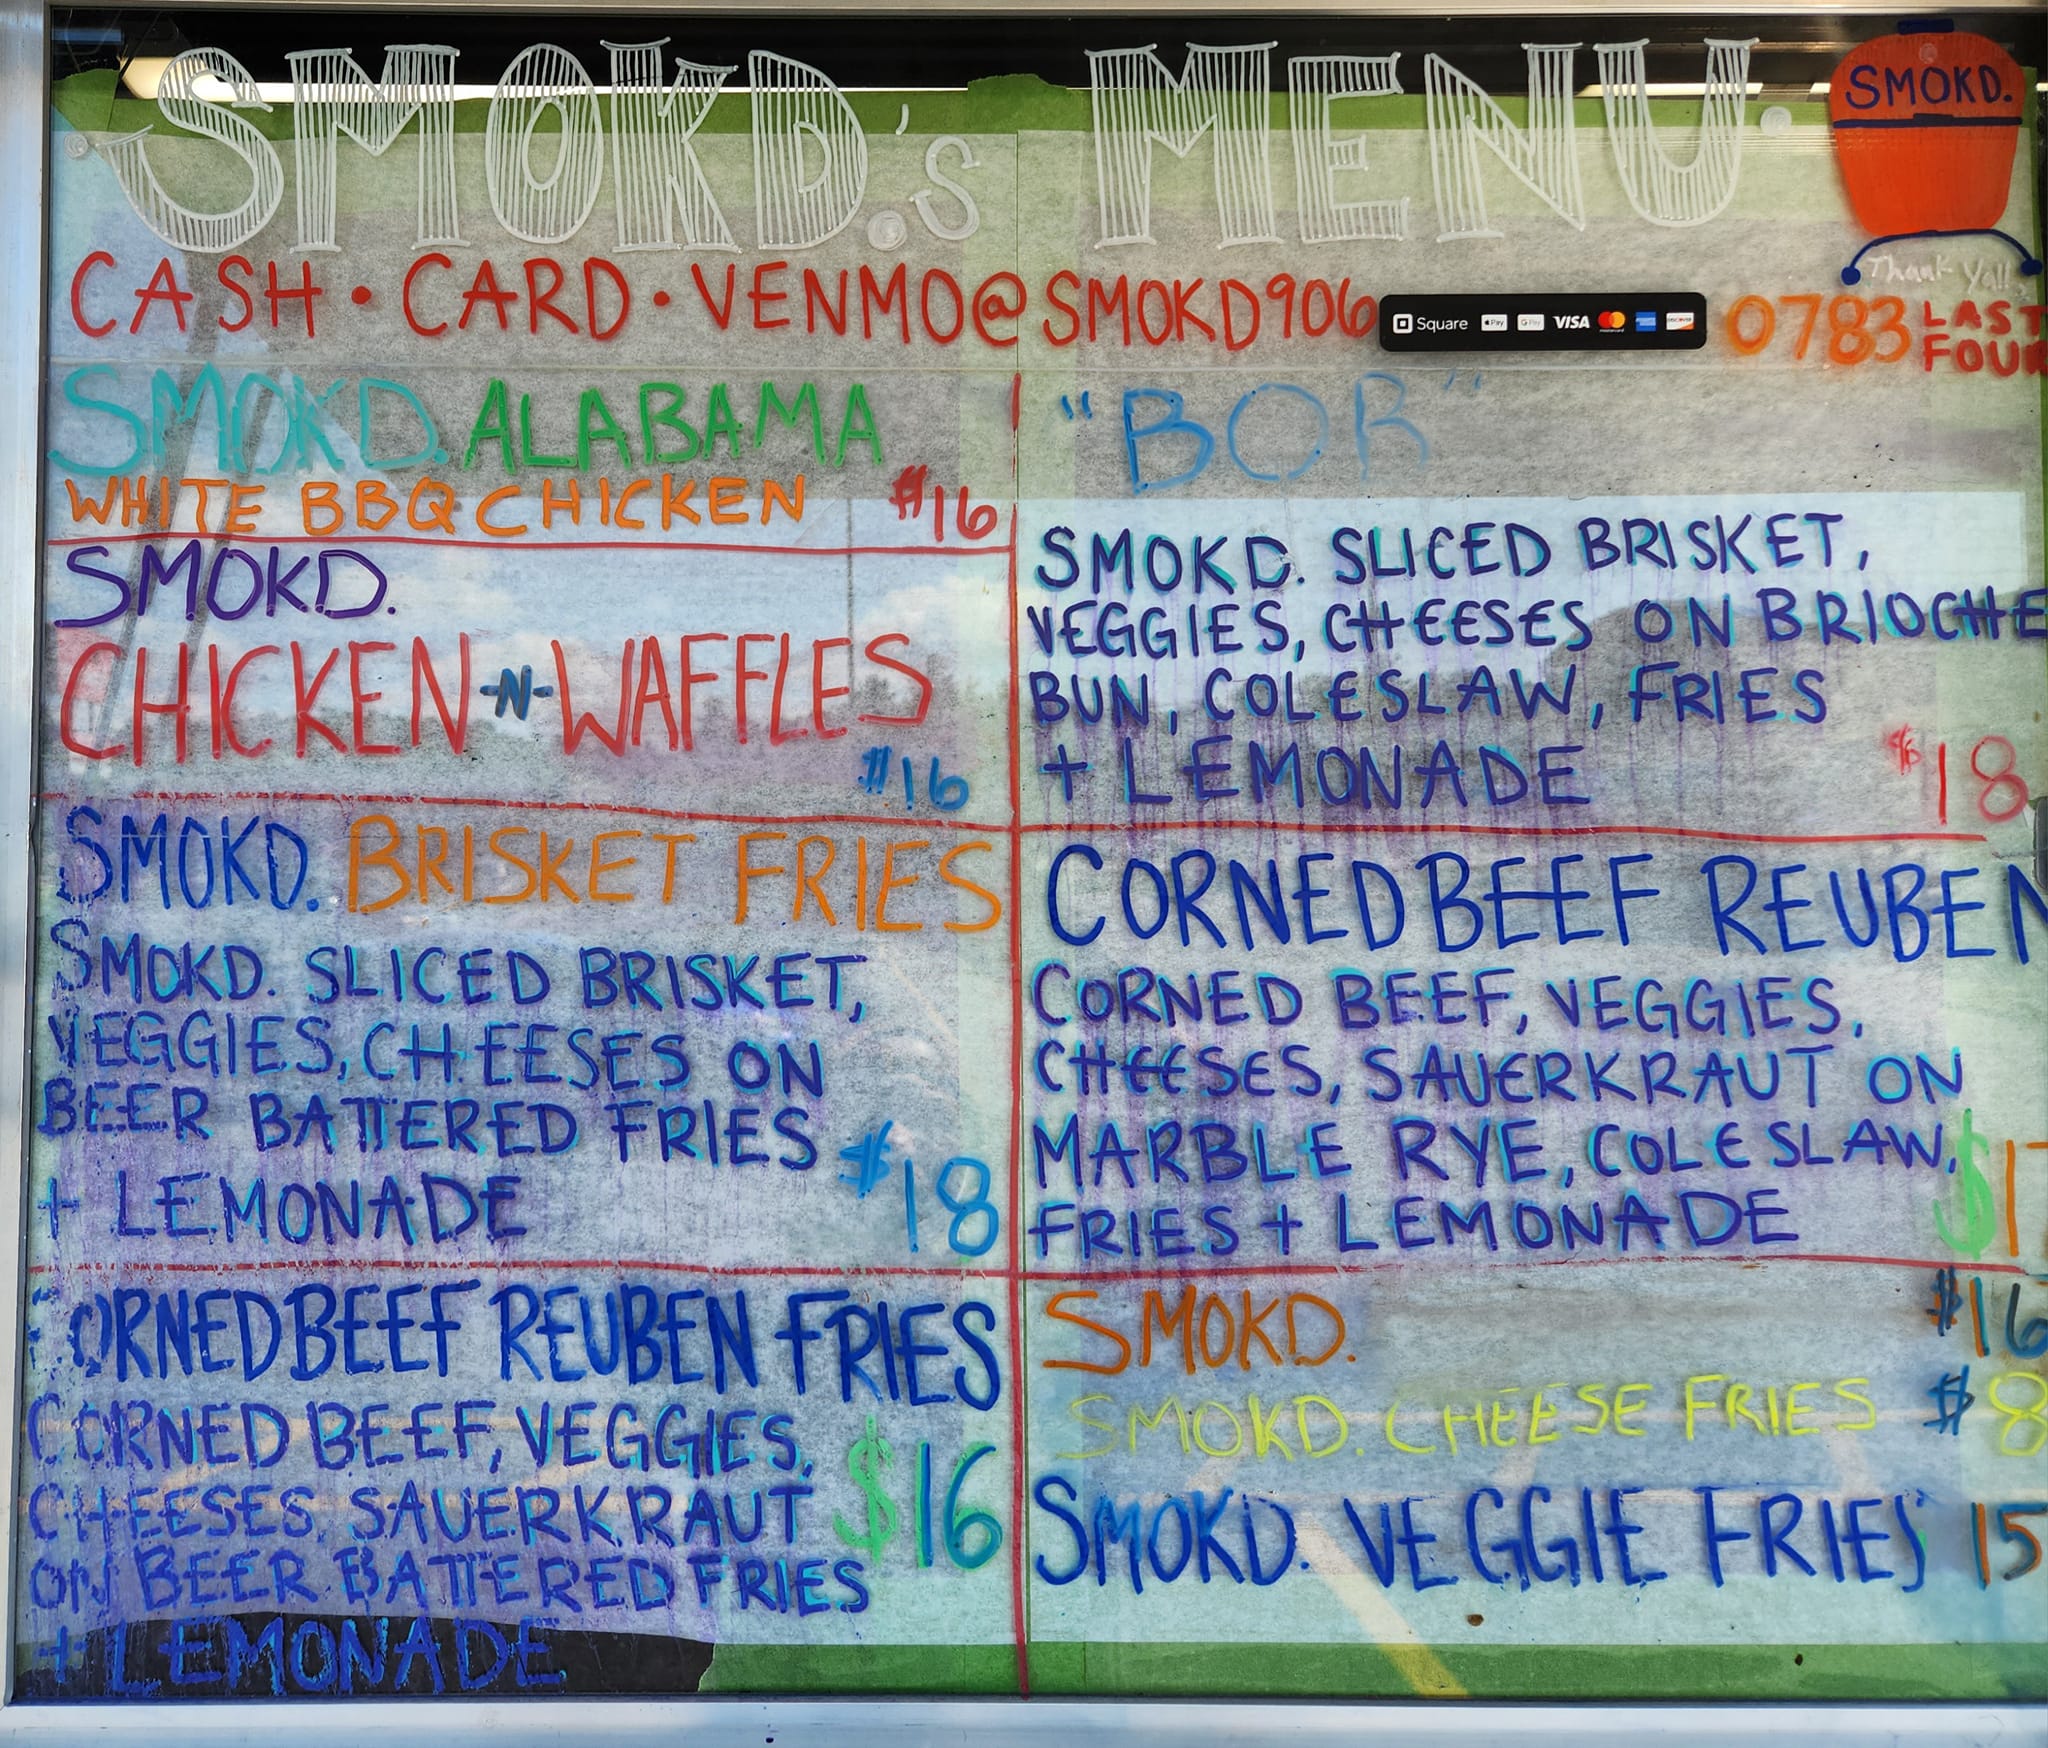 SMOKD.'s MENU.
SMOKD.
Thank Yall.
CASH · CARD · VENMO@SMOKD906
Square Pay G Pay VISA mastercard DISCOVER
0783 LAST
FOUR
SMOKD. ALABAMA
WHITE BBQ CHICKEN $16
SMOKD.
CHICKEN -N- WAFFLES
$16
SMOKD. BRISKET FRIES
SMOKD. SLICED BRISKET,
VEGGIES, CHEESES ON
BEER BATTERED FRIES
+ LEMONADE $18
CORNED BEEF REUBEN FRIES
CORNED BEEF, VEGGIES,
CHEESES, SAUERKRAUT
ON BEER BATTERED FRIES
+ LEMONADE
$16
"BOB"
SMOKD. SLICED BRISKET,
VEGGIES, CHEESES ON BRIOCHE
BUN, COLESLAW, FRIES
+ LEMONADE $18
CORNED BEEF REUBEN
CORNED BEEF, VEGGIES,
CHEESES, SAUERKRAUT ON
MARBLE RYE, COLESLAW,
FRIES + LEMONADE
SMOKD. $16
SMOKD. CHEESE FRIES $8
SMOKD. VEGGIE FRIES 15